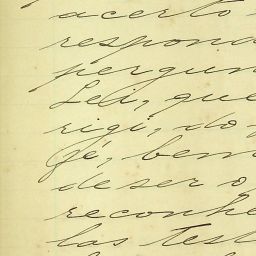 acerto
respond
pergun
Lei, que
rigi, do
fé, bem
de ser o
reconhe
las Test